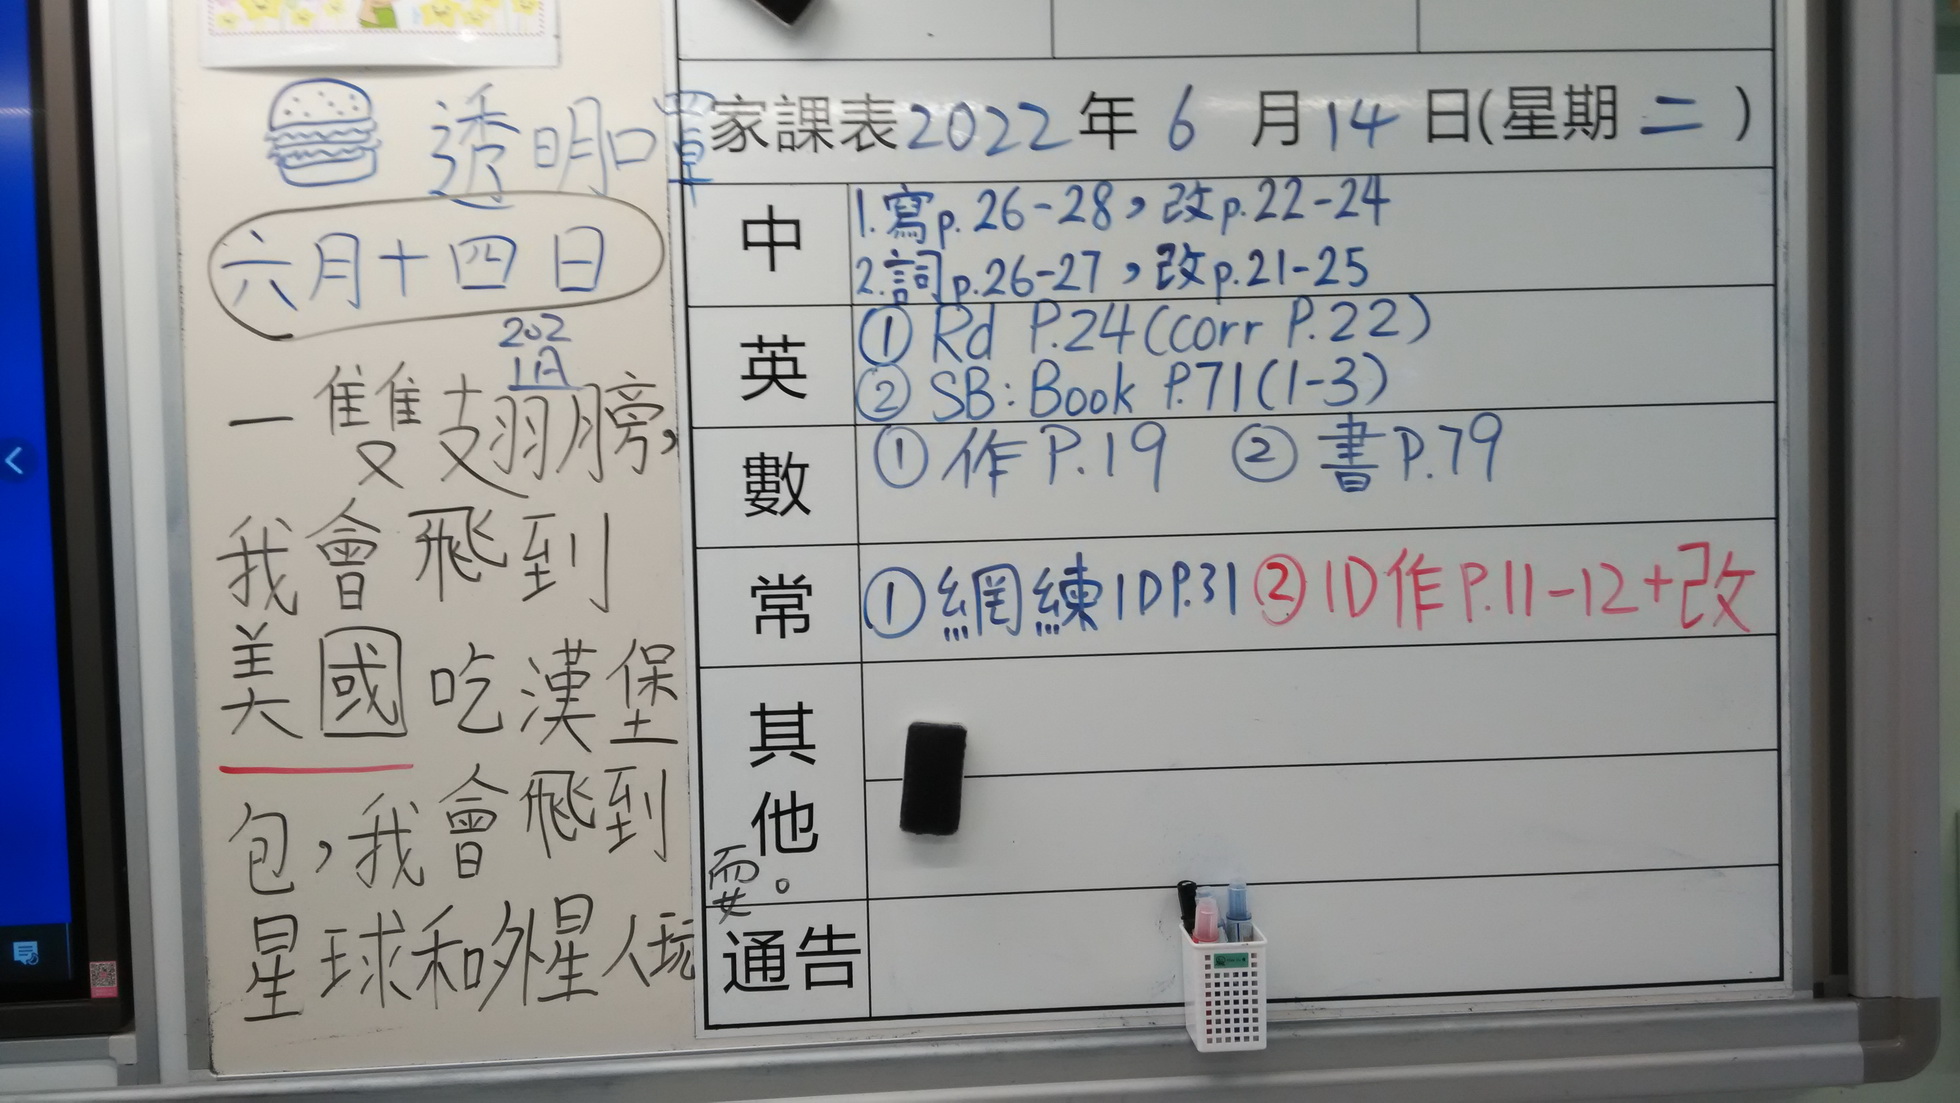 透明口罩
六月十四日
202
1A
一雙翅膀，
我會飛到
美國吃漢堡
包，我會飛到
星球和外星人玩
耍。
家課表2022年6月14日(星期二)
中
1.寫p.26-28，改p.22-24
2.詞p.26-27，改p.21-25
英
① Rd P.24(corr P.22)
② SB:Book P.71(1-3)
數
①作P.19 ②書P.79
常
①網練1DP.31 ②1D作P.11-12+改
其他
通告